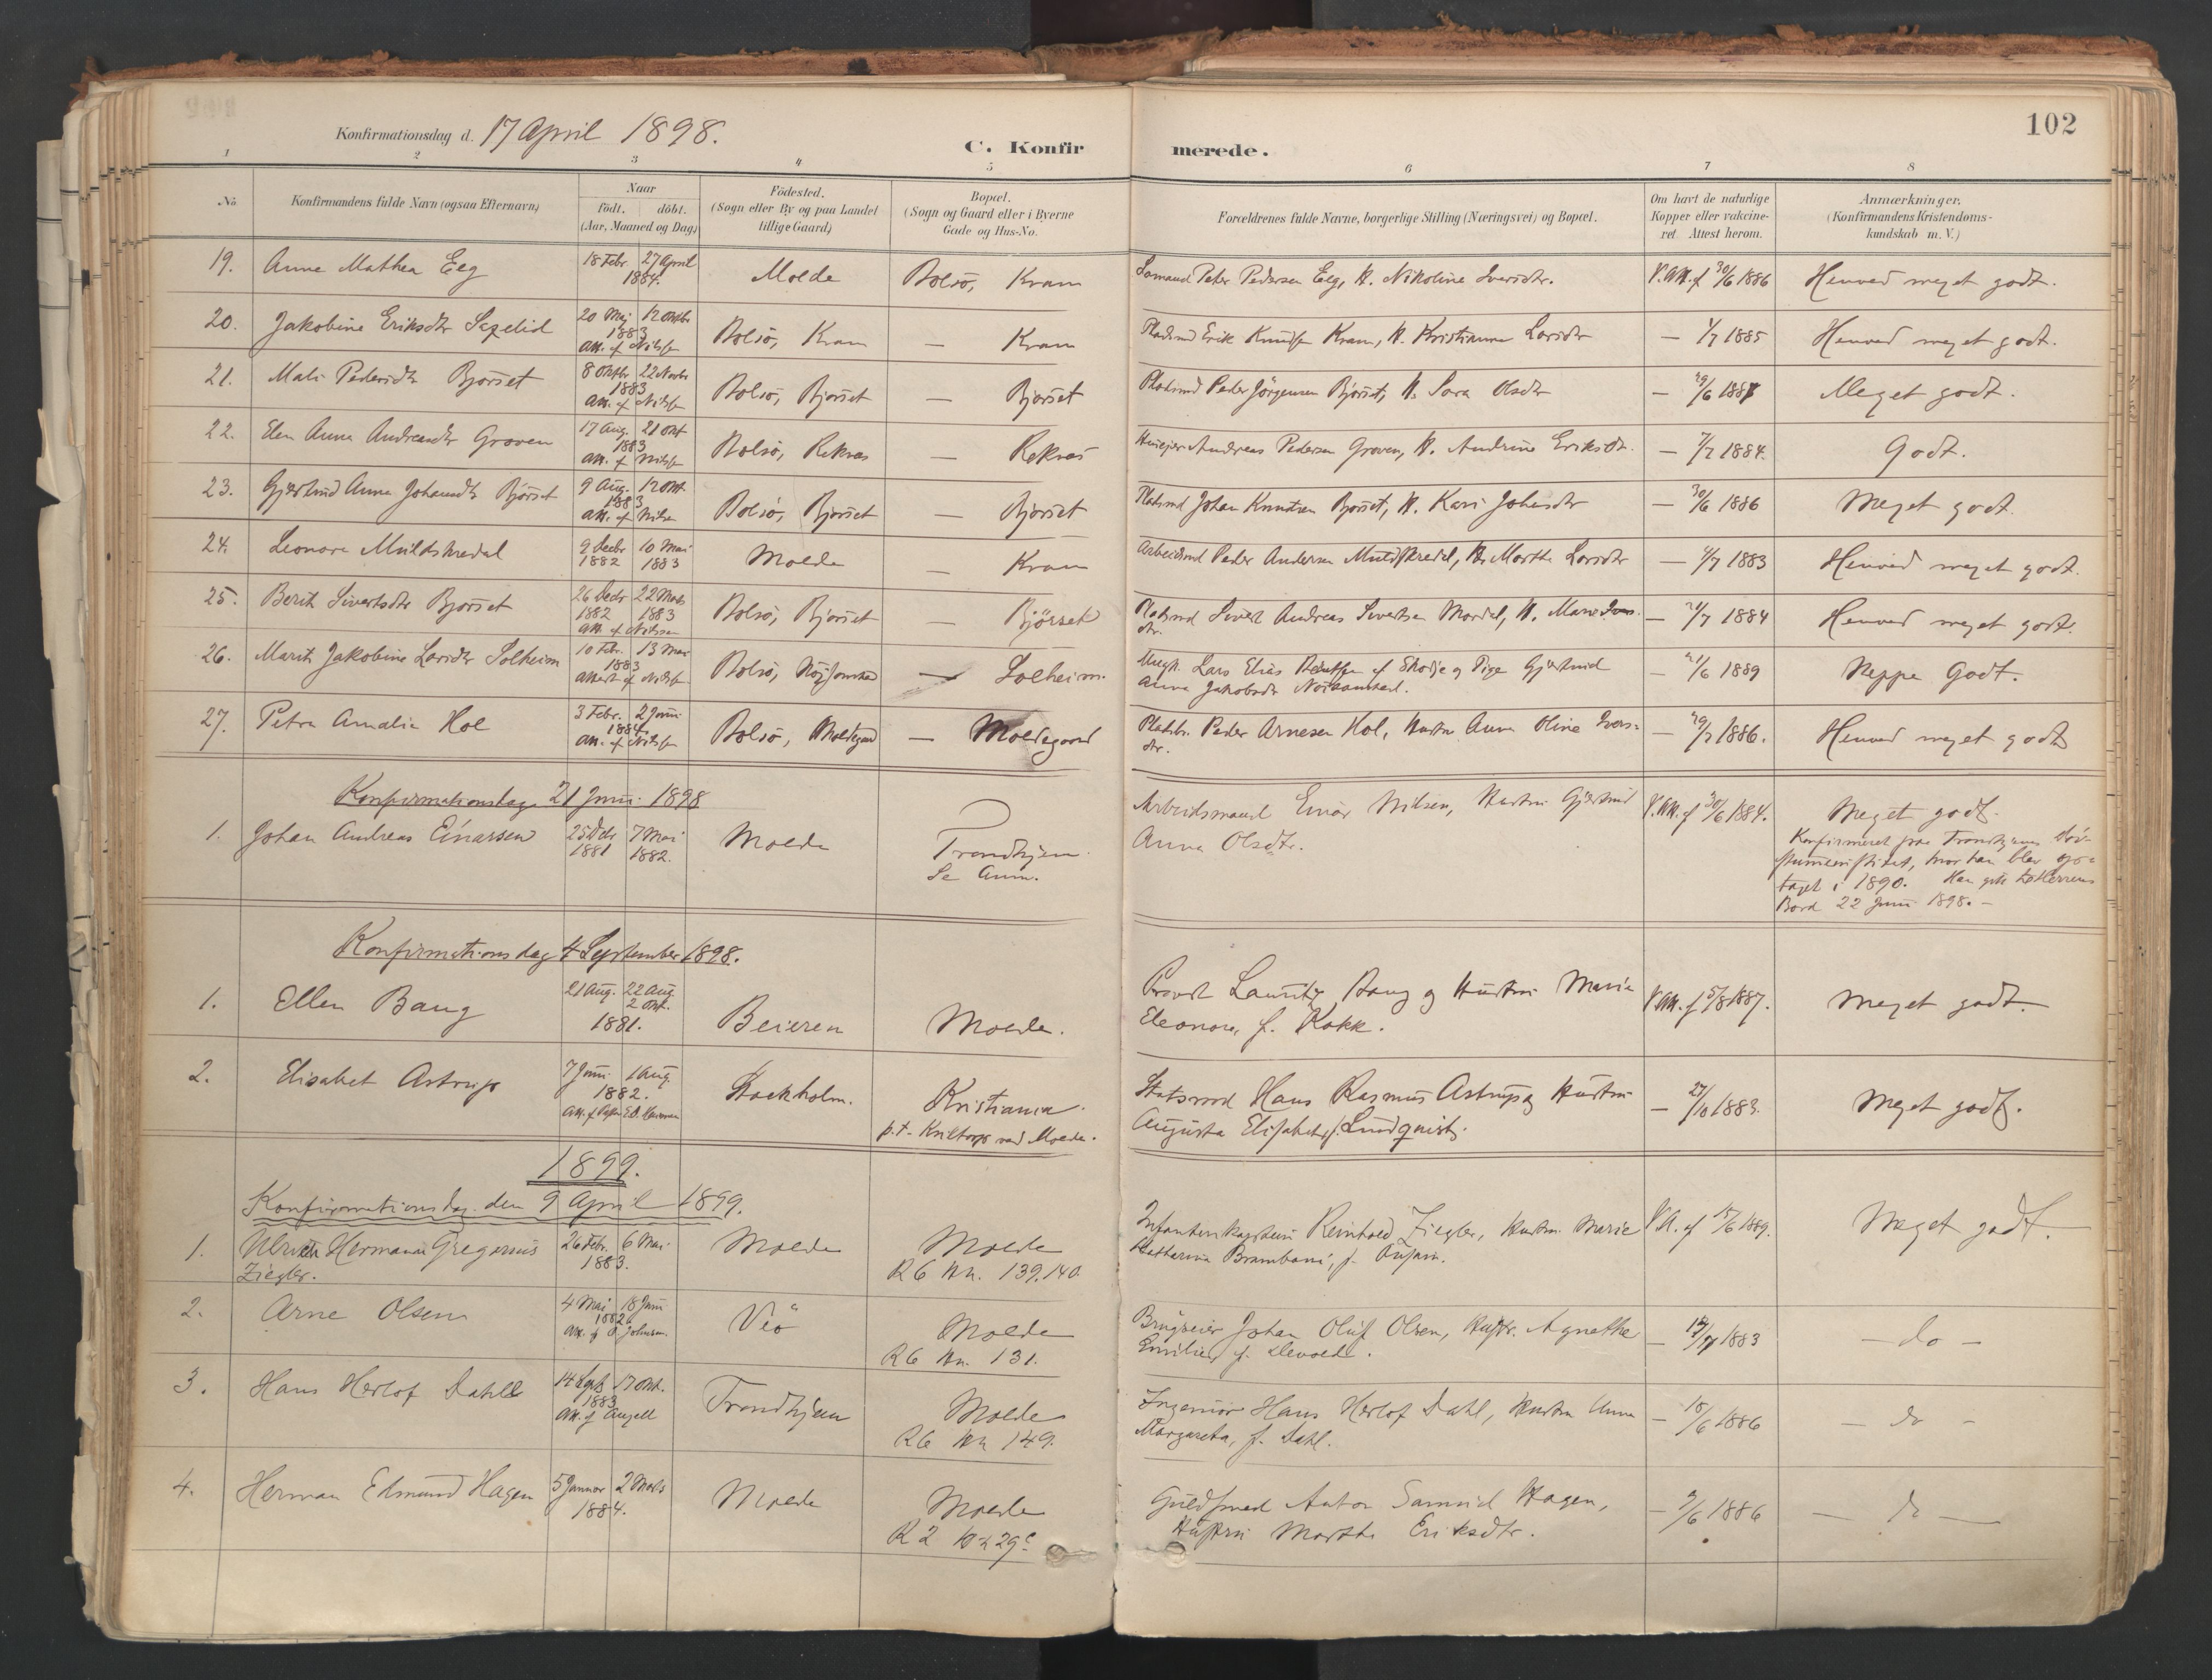 Konfirmationsdag d. 17 April 1898.
C. Konfirmerede.
102
1 2 3 4 5 6 7 8
No
Konfirmandens fulde Navn (ogsaa Efternavn)
Naar
födt. döbt.
(Aar, Maaned og Dag)
Födested.
(Sogn eller By og paa Landet
tillige Gaard)
Bopæl.
(Sogn og Gaard eller i Byerne
Gade og Hus-No.
Forældrenes fulde Navne, borgerlige Stilling (Næringsvei) og Bopæl.
Om havt de naturlige
Kopper eller vakcine-
ret. Attest herom.
Anmærkninger.
(Konfirmandens Kristendoms-
kundskab m. V.)
19. Anne Mathea Eeg 18 Febr. 27 April 1884. Molde Bolsö, Kram Peter Pedersen Eeg, H. Nikoline Iversdtr. V. Att. f 30/6 1886 Henved meget godt.
20. Jakobine Eriksdtr 20 Maj 12 Oktbr 1883 Att. f Nilssen Bolsö, Kram — Kram Pladsmd Erik Knudsen Kram, H. Kristianne Larsdtr — 1/7 1885 Henved meget godt.
21. Mali Pedersdtr Bjorset 8 Oktbr 22 Novbr 1883 Att. f Nilssen Bolsö, Bjorset — Bjorset Pladsmd Peder Jörgensen Bjorset, H. Sara Olsdtr — 29/6 1887 Meget godt.
22. Elen Anna Andreasdtr Groven 17 Aug. 21 Okt 1883 Att. f Nilssen Bolsö, Reknes — Reknes Huseier Andreas Pedersen Groven, H. Andrine Eriksdtr. — 7/7 1884. Godt.
23. Gjertrud Anna Johansdtr Bjorset 9 Aug. 12 Okt 1883 Att. f Nilsen Bolsö, Bjorset — Bjorset Pladsmd Johan Knudsen Bjorset, H. Kari Johansdtr — 30/6 1886 Meget godt.
24. Leonora Muldskredal 9 Decbr 1882 10 Mai 1883 Molde — Kram Arbeidsmd Peder Andersen Muldskredal, H. Marthe Larsdtr — 4/7 1883 Henved meget godt.
25. Berit Sivertsdtr Bjorset 26 Decbr 1882 22 Marts 1883 Att. f Nilssen Bolsö, Bjorset — Bjørset Pladsmd Sivert Andreas Sivertsen, H. Marie Ivers-
dtr. — 21/7 1884 Henved meget godt.
26. Marit Jakobine Larsdtr Solheim 10 Febr. 13 Mai 1883 Attest f Nilssen Bolsö, — Solheim. Ungk. Lars Elias Knutsen f Skodje og Pige Gjertrud
Anna Jakobsdtr. — 21/6 1889 Neppe Godt.
27. Petra Amalia Hol 3 Febr. 2 Juni 1884 Att. f Nilssen Bolsö, Moldegaard — Moldegaard Pladsbr. Peder Arnesen Hol, Hustru Anne Oline Ivers-
dtr. — 29/7 1886. Henved meget godt
Konfirmationsdag 21 Juni 1898
1. Johan Andreas Einarsen 25 Debr 1881 7 Mai 1882. Molde Trondhjem.
Se Anm.
Arbeidsmand Einar Nilsen, Hustru Gjertrud
Anna Olsdtr.
V. Att. f 30/6 1884.
Meget godt.
Konfirmeret fra Trondhjems döv-
stummeinstitut, hvor han blev op-
taget i 1890. Han gik til Herrens
Bord 22 Juni 1898. –
Konfirmationsdag 4 September 1898.
1. Ellen Bang 21 Aug. 22 Aug. 2 Okt. 1881. Beieren Molde.
Provst Lauritz Bang og Hustru Maria
Eleonora, f. Kokk.
V. Att. f 5/8 1887. Meget godt.
2. Elisabet Astrup 7 Juni 1 Aug. 1882. Stockholm. Kristiania.
p.t. Kniltorp ved Molde.
Statsraad Hans Rasmus Astrup og Hustru
Augusta Elisabet, f. Lundqvist.
— 27/10 1883. Meget godt.
1899.
Konfirmationsdag den 9 April 1899.
1. Ulrich Hermann Gregorius
Ziegler.
26 Febr. 6 Mai 1883. Molde Molde
R 6 Hn. 139.140.
Infanterikaptein Reinhold Ziegler, Hustru Marie
Katharina, f. 
V. A. f 15/6 1889. Meget godt.
2. Arne Olsen 4 Mai 18 Juni 1882 Att. f O. Johnsen. Veö Molde
R 6 Hn. 131.
Brugseier Johan Oluf Olsen, Hustr. Agnethe
Emilie, f. Devold.
— 14/7 1883 — do —
3. Hans Herlof Dahl 14 Septb. 17 Okt. 1883 Att. f Angell Trondhjem Molde
R 6 Hn 149.
Ingeniör Hans Herlof Dahl, Hustru Anna
Margareta, f. Dahl.
— 18/6 1886 — do —
4. Herman Edmund Hagen 5 Januar 2 Marts 1884. Molde Molde
R 2 Hn 29c
Guldsmed Anton Samuel Hagen,
Hustru Marthe Eriksdtr.
— 9/6 1886 — do —